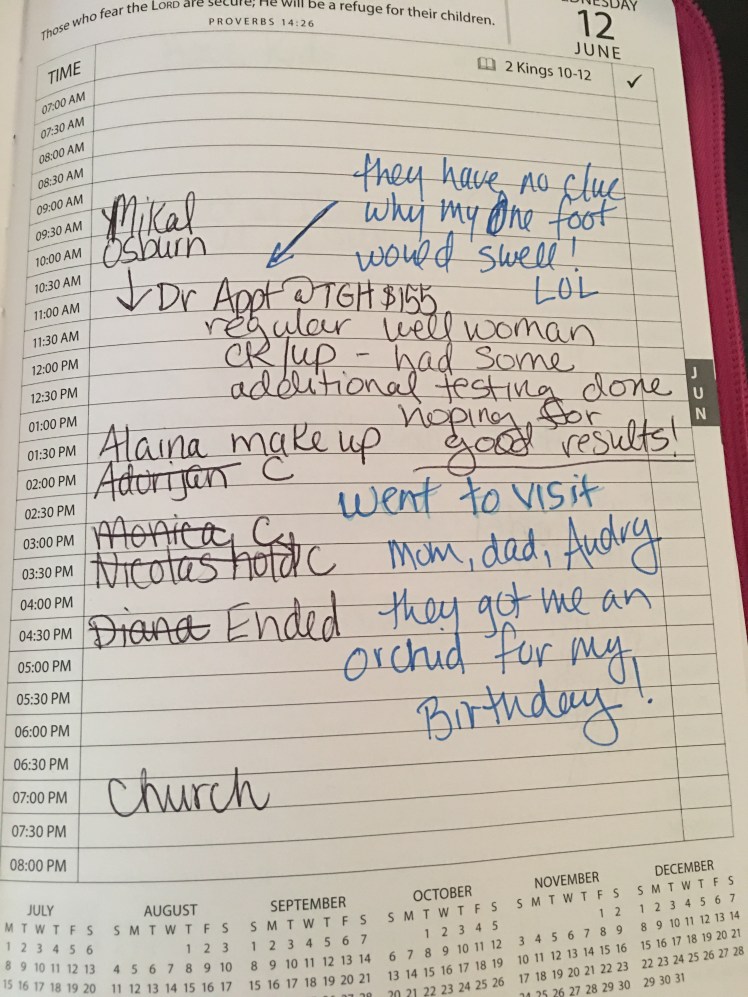 Those who fear the LORD are secure; He will be a refuge for their children.
PROVERBS 14:26
12
JUNE
TIME
2 Kings 10-12 ✓
07:00 AM
07:30 AM
08:00 AM
08:30 AM
they have no clue
09:00 AM
Mikal
why my one foot
09:30 AM
Osburn
would swell!
10:00 AM
LOL
10:30 AM
Dr Appt @ TGH $155
11:00 AM
regular well woman
11:30 AM
ck/up - had some
12:00 PM
additional testing done
12:30 PM
hoping for
01:00 PM
Alaina make up
good results!
01:30 PM
Adorijan C
02:00 PM
went to visit
02:30 PM
Monica C
03:00 PM
Mom, dad, Audry
Nicolas hold C
03:30 PM
they got me an
04:00 PM
Diana Ended
04:30 PM
orchid for my
05:00 PM
Birthday!
05:30 PM
06:00 PM
06:30 PM
Church
07:00 PM
07:30 PM
08:00 PM
JUN
JULY
M T W T F S
1 2 3 4 5 6
8 9 10 11 12 13
15 16 17 18 19 20
AUGUST
S M T W T F S
1 2 3
4 5 6 7 8 9 10
11 12 13 14 15 16 17
SEPTEMBER
S M T W T F S
1 2 3 4 5 6 7
8 9 10 11 12 13 14
15 16 17 18 19 20 21
OCTOBER
S M T W T F S
1 2 3 4 5
6 7 8 9 10 11 12
13 14 15 16 17 18 19
20 21 22 23 24 25 26
NOVEMBER
S M T W T F S
1 2
3 4 5 6 7 8 9
10 11 12 13 14 15 16
17 18 19 20 21 22 23
24 25 26 27 28 29 30
DECEMBER
S M T W T F S
1 2 3 4 5 6 7
8 9 10 11 12 13 14
15 16 17 18 19 20 21
22 23 24 25 26 27 28
29 30 31